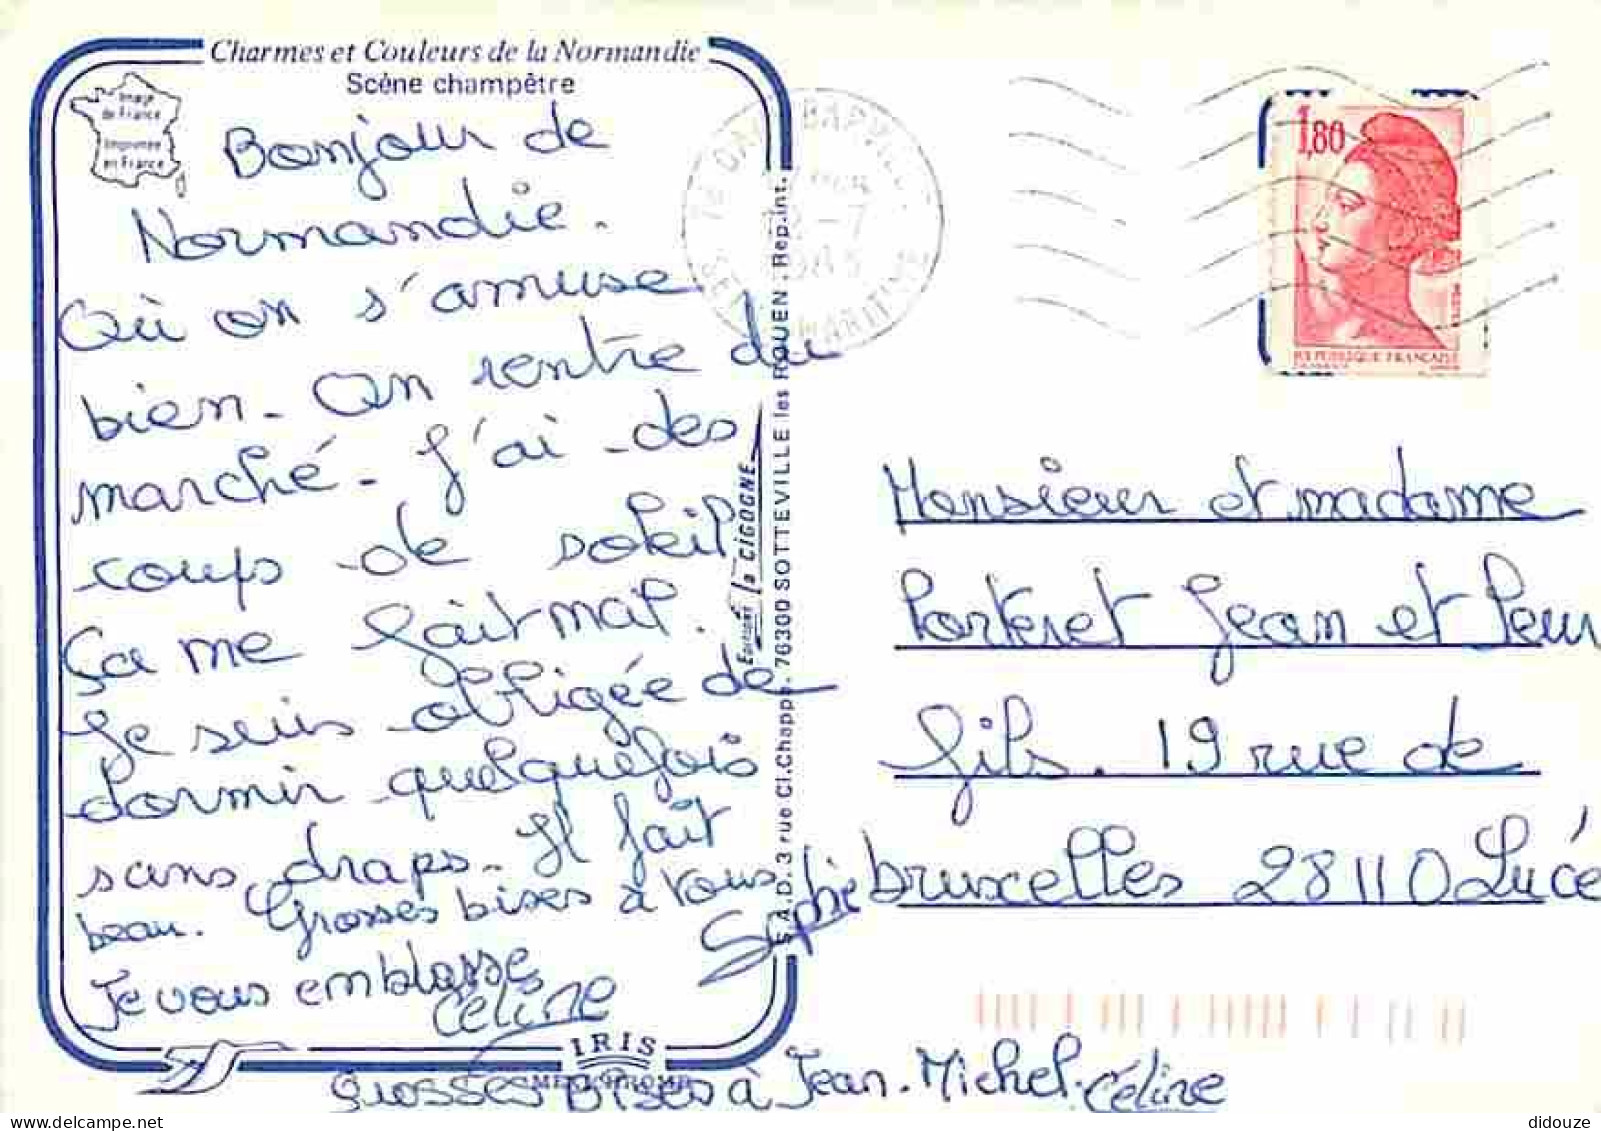 Charmes et Couleurs de la Normandie
Scène champêtre
Image
de France
Imprimée
en France
Bonjour de
Normandie.
Où on s'amuse
bien. On rentre du
marché. J'ai des
coups de soleil
Ça me fait mal.
Je suis obligée de
dormir quelquefois
sans draps. Il fait
beau. Grosses bises à vous
Sophie
Je vous emblasse
Céline
IRIS
Grosses Bises à Jean-Michel. Céline
Editions la CIGOGNE
S.A.D. 3 rue Cl.Chappe. 76300 SOTTEVILLE les ROUEN. Rep.int.
MARITIME
1,80
REPUBLIQUE FRANÇAISE
Monsieur et madame
Porteret Jean et leur
fils. 19 rue de
bruxelles 28110 Lucé
didouze